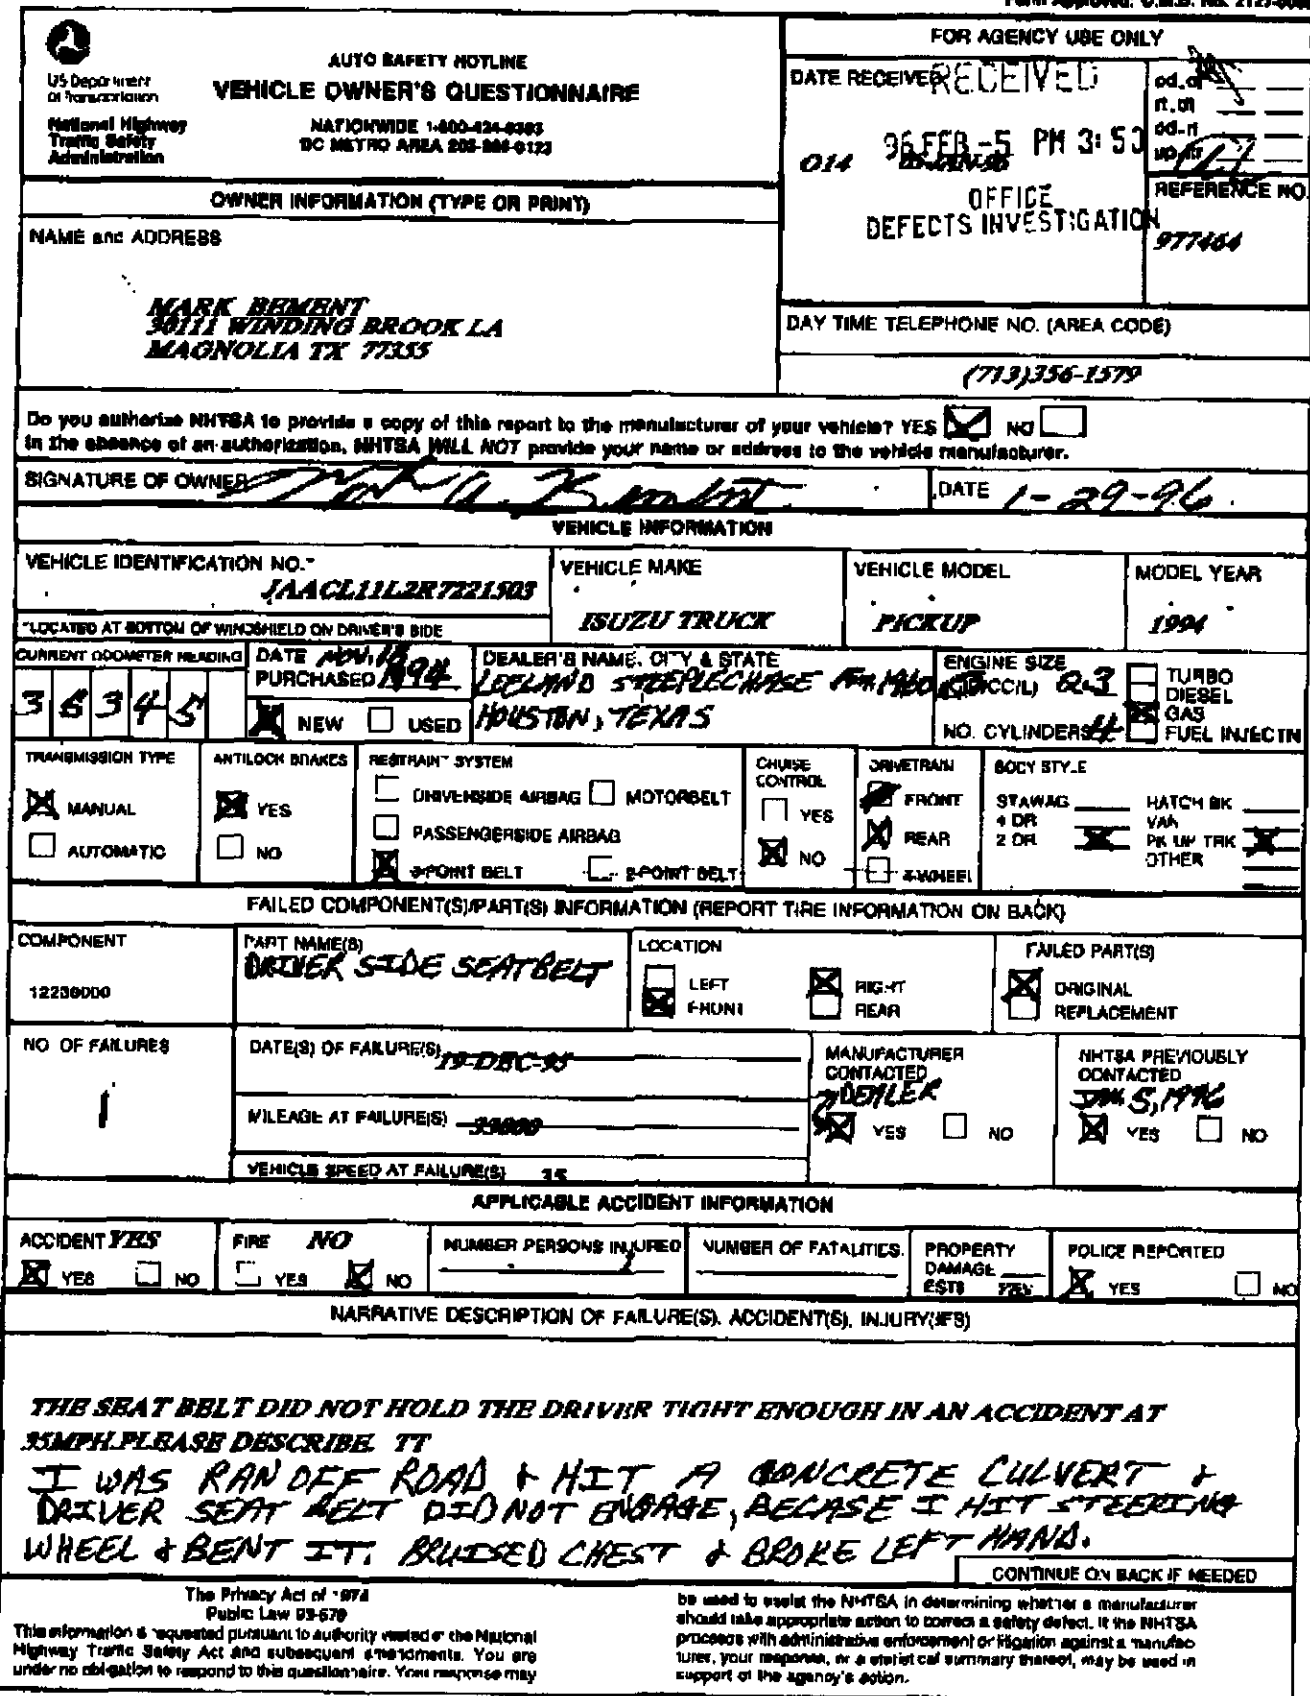 Form Approved: O.M.B. No. 2127-0008
US Department
of Transportation
National Highway
Traffic Safety
Administration
AUTO SAFETY HOTLINE
VEHICLE OWNER'S QUESTIONNAIRE
NATIONWIDE 1-800-424-9393
DC METRO AREA 202-366-0123
FOR AGENCY USE ONLY
DATE RECEIVED
RECEIVED
96 FEB -5 PM 3:50
014
OFFICE
DEFECTS INVESTIGATION
od_or
rt_dt
od-rt
up_ltr
REFERENCE NO.
977464
OWNER INFORMATION (TYPE OR PRINT)
NAME and ADDRESS
MARK BEMENT
30111 WINDING BROOK LA
MAGNOLIA TX 77355
DAY TIME TELEPHONE NO. (AREA CODE)
(713)356-1579
Do you authorize NHTSA to provide a copy of this report to the manufacturer of your vehicle? YES NO
In the absence of an authorization, NHTSA WILL NOT provide your name or address to the vehicle manufacturer.
SIGNATURE OF OWNER Mark A. Bement
DATE 1-29-96
VEHICLE INFORMATION
VEHICLE IDENTIFICATION NO.*
JAACL11L2R7221503
*LOCATED AT BOTTOM OF WINDSHIELD ON DRIVER'S SIDE
VEHICLE MAKE
ISUZU TRUCK
VEHICLE MODEL
PICKUP
MODEL YEAR
1994
CURRENT ODOMETER READING
36345
DATE PURCHASED NOV. 1994
NEW USED
DEALER'S NAME, CITY & STATE
LEELAND STEEPLECHASE FM 1960
HOUSTON, TEXAS
ENGINE SIZE
(CID/CC/L) 2.3
NO. CYLINDERS 4
TURBO
DIESEL
GAS
FUEL INJECTN
TRANSMISSION TYPE
MANUAL
AUTOMATIC
ANTILOCK BRAKES
YES
NO
RESTRAINT SYSTEM
DRIVERSIDE AIRBAG MOTORBELT
PASSENGERSIDE AIRBAG
3-POINT BELT 2-POINT BELT
CRUISE
CONTROL
YES
NO
DRIVETRAIN
FRONT
REAR
4-WHEEL
BODY STYLE
STAWAG HATCH BK
4 DR VAN
2 DR PK UP TRK
OTHER
FAILED COMPONENT(S)/PART(S) INFORMATION (REPORT TIRE INFORMATION ON BACK)
COMPONENT
12230000
PART NAME(S)
DRIVER SIDE SEATBELT
LOCATION
LEFT RIGHT
FRONT REAR
FAILED PART(S)
ORIGINAL
REPLACEMENT
NO OF FAILURES
1
DATE(S) OF FAILURE(S) 19-DEC-95
MILEAGE AT FAILURE(S)
VEHICLE SPEED AT FAILURE(S) 35
MANUFACTURER
CONTACTED
DEALER
YES NO
NHTSA PREVIOUSLY
CONTACTED
JAN. 5, 1996
YES NO
APPLICABLE ACCIDENT INFORMATION
ACCIDENT YES
YES NO
FIRE NO
YES NO
NUMBER PERSONS INJURED
1
NUMBER OF FATALITIES.
PROPERTY
DAMAGE
EST$ YES
POLICE REPORTED
YES NO
NARRATIVE DESCRIPTION OF FAILURE(S), ACCIDENT(S), INJURY(IES)
THE SEAT BELT DID NOT HOLD THE DRIVER TIGHT ENOUGH IN AN ACCIDENT AT
35MPH.PLEASE DESCRIBE. TT
I WAS RAN OFF ROAD & HIT A CONCRETE CULVERT &
DRIVER SEAT BELT DID NOT ENGAGE, BECASE I HIT STEERING
WHEEL & BENT IT. BRUISED CHEST & BROKE LEFT HAND.
CONTINUE ON BACK IF NEEDED
The Privacy Act of 1974
Public Law 93-579
This information is requested pursuant to authority vested in the National
Highway Traffic Safety Act and subsequent amendments. You are
under no obligation to respond to this questionnaire. Your response may
be used to assist the NHTSA in determining whether a manufacturer
should take appropriate action to correct a safety defect. If the NHTSA
proceeds with administrative enforcement or litigation against a manufac
turer, your response, or a statistical summary thereof, may be used in
support of the agency's action.